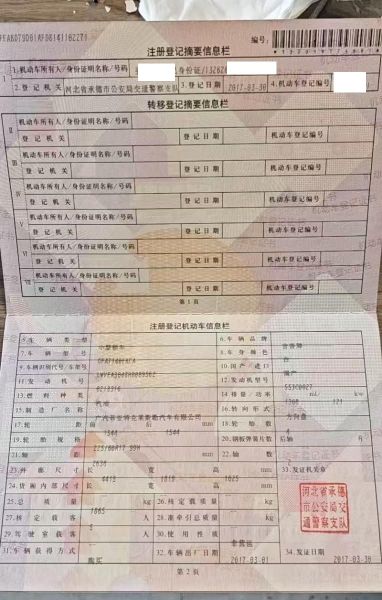 注册登记摘要信息栏
1.机动车所有人/身份证明名称/号码
2.登记机关 河北省承德市公安局交通警察支队 3.登记日期 2017-03-30 4.机动车登记编号
转移登记摘要信息栏
II 机动车所有人/身份证明名称/号码
登记机关 登记日期 机动车登记编号
III 机动车所有人/身份证明名称/号码
登记机关 登记日期 机动车登记编号
IV 机动车所有人/身份证明名称/号码
登记机关 登记日期 机动车登记编号
V 机动车所有人/身份证明名称/号码
登记机关 登记日期 机动车登记编号
VI 机动车所有人/身份证明名称/号码
登记机关 登记日期 机动车登记编号
VII 机动车所有人/身份证明名称/号码
登记机关 登记日期 机动车登记编号
第1页
注册登记机动车信息栏
5.车辆类型 小型轿车 6.车辆品牌
7.车辆型号 8.车身颜色 白
9.车辆识别代号/车架号 10.国产/进口 国产
11.发动机号 12.发动机型号
13.燃料种类 汽油 14.排量/功率 1368 ml/ kw
15.制造厂名称 广汽菲亚特克莱斯勒汽车有限公司 16.转向形式 方向盘
17.轮距 前 1544 后 1544 mm 18.轮胎数 4
19.轮胎规格 225/60R17 99H 20.钢板弹簧片数 后轴
21.轴距 2634 mm 22.轴数 2
23.外廓尺寸 长 4413 宽 1819 高 1625 mm 33.发证机关章
24.货厢内部尺寸 长 宽 高 mm
25.总质量 1865 kg 26.核定载质量 kg
27.核定载客 5 人 28.准牵引总质量 kg
29.驾驶室载客 人 30.使用性质 非营运
31.车辆获得方式 购买 32.车辆出厂日期 2017-03-01 34.发证日期 2017-03-30
河北省承德
市公安局交
通警察支队
第2页